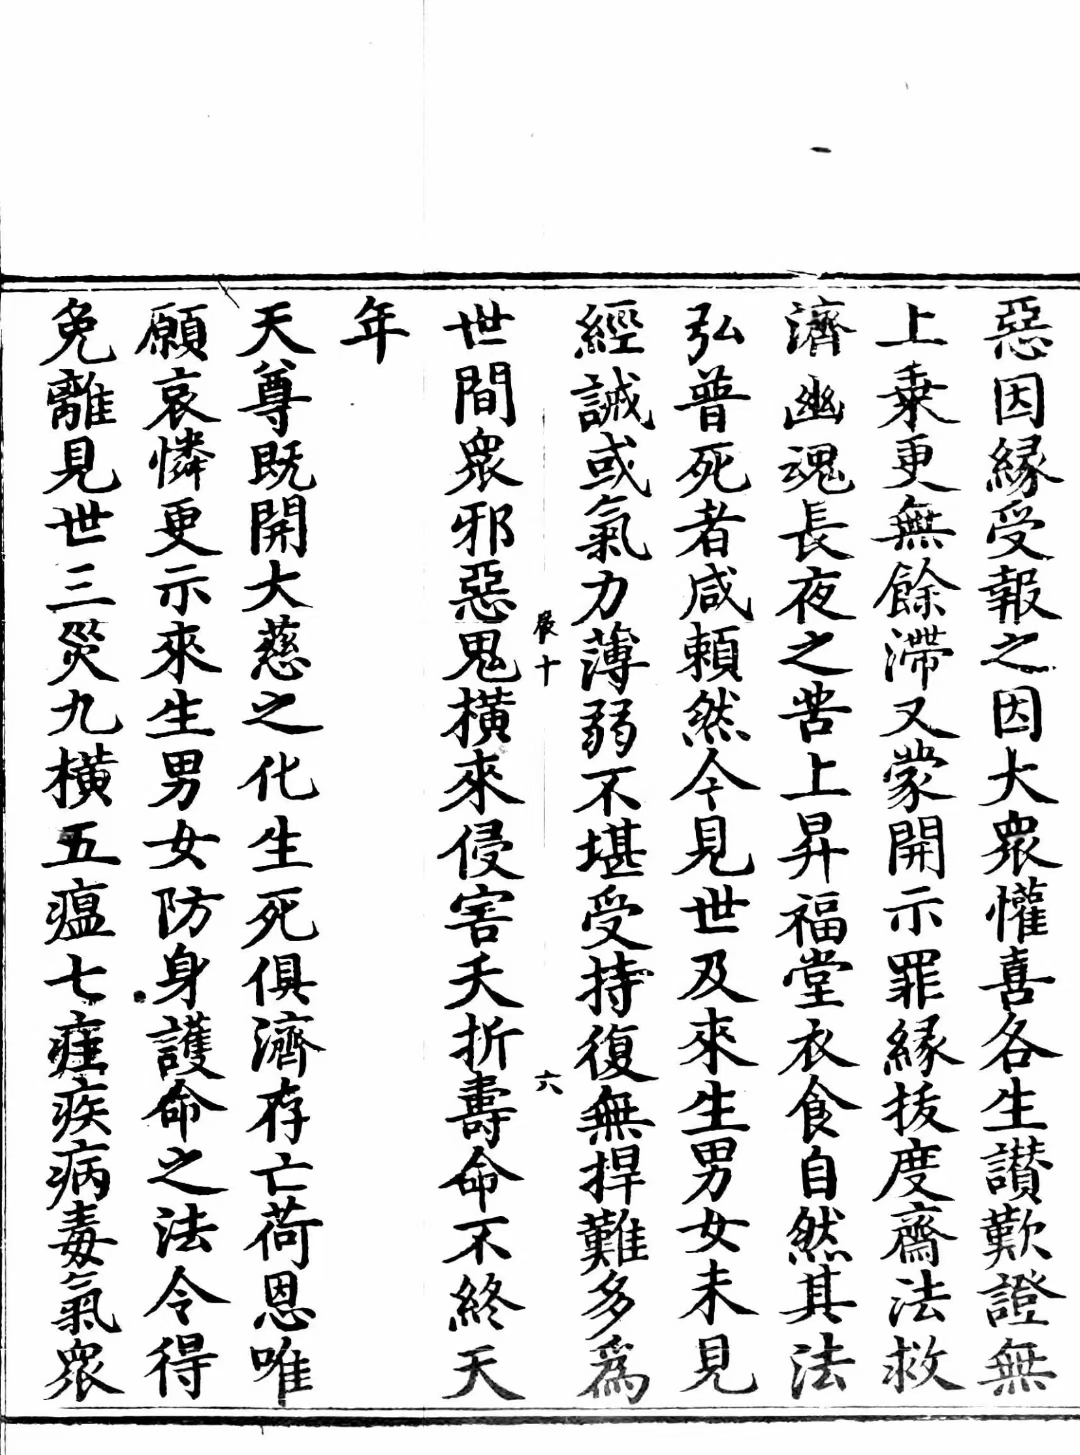 惡因縁受報之因大衆懽喜各生讃歎證無
上乗更無餘滯又蒙開示罪縁拔度齋法救
濟幽魂長夜之苦上昇福堂衣食自然其法
弘普死者咸頼然今見世及來生男女未見
經誡或氣力薄弱不堪受持復無捍難多爲
晨十
六
世間衆邪惡鬼橫來侵害夭折壽命不終天
年
天尊既開大慈之化生死俱濟存亡荷恩唯
願哀憐更示來生男女防身護命之法令得
免離見世三災九橫五瘟七疰疾病毒氣衆